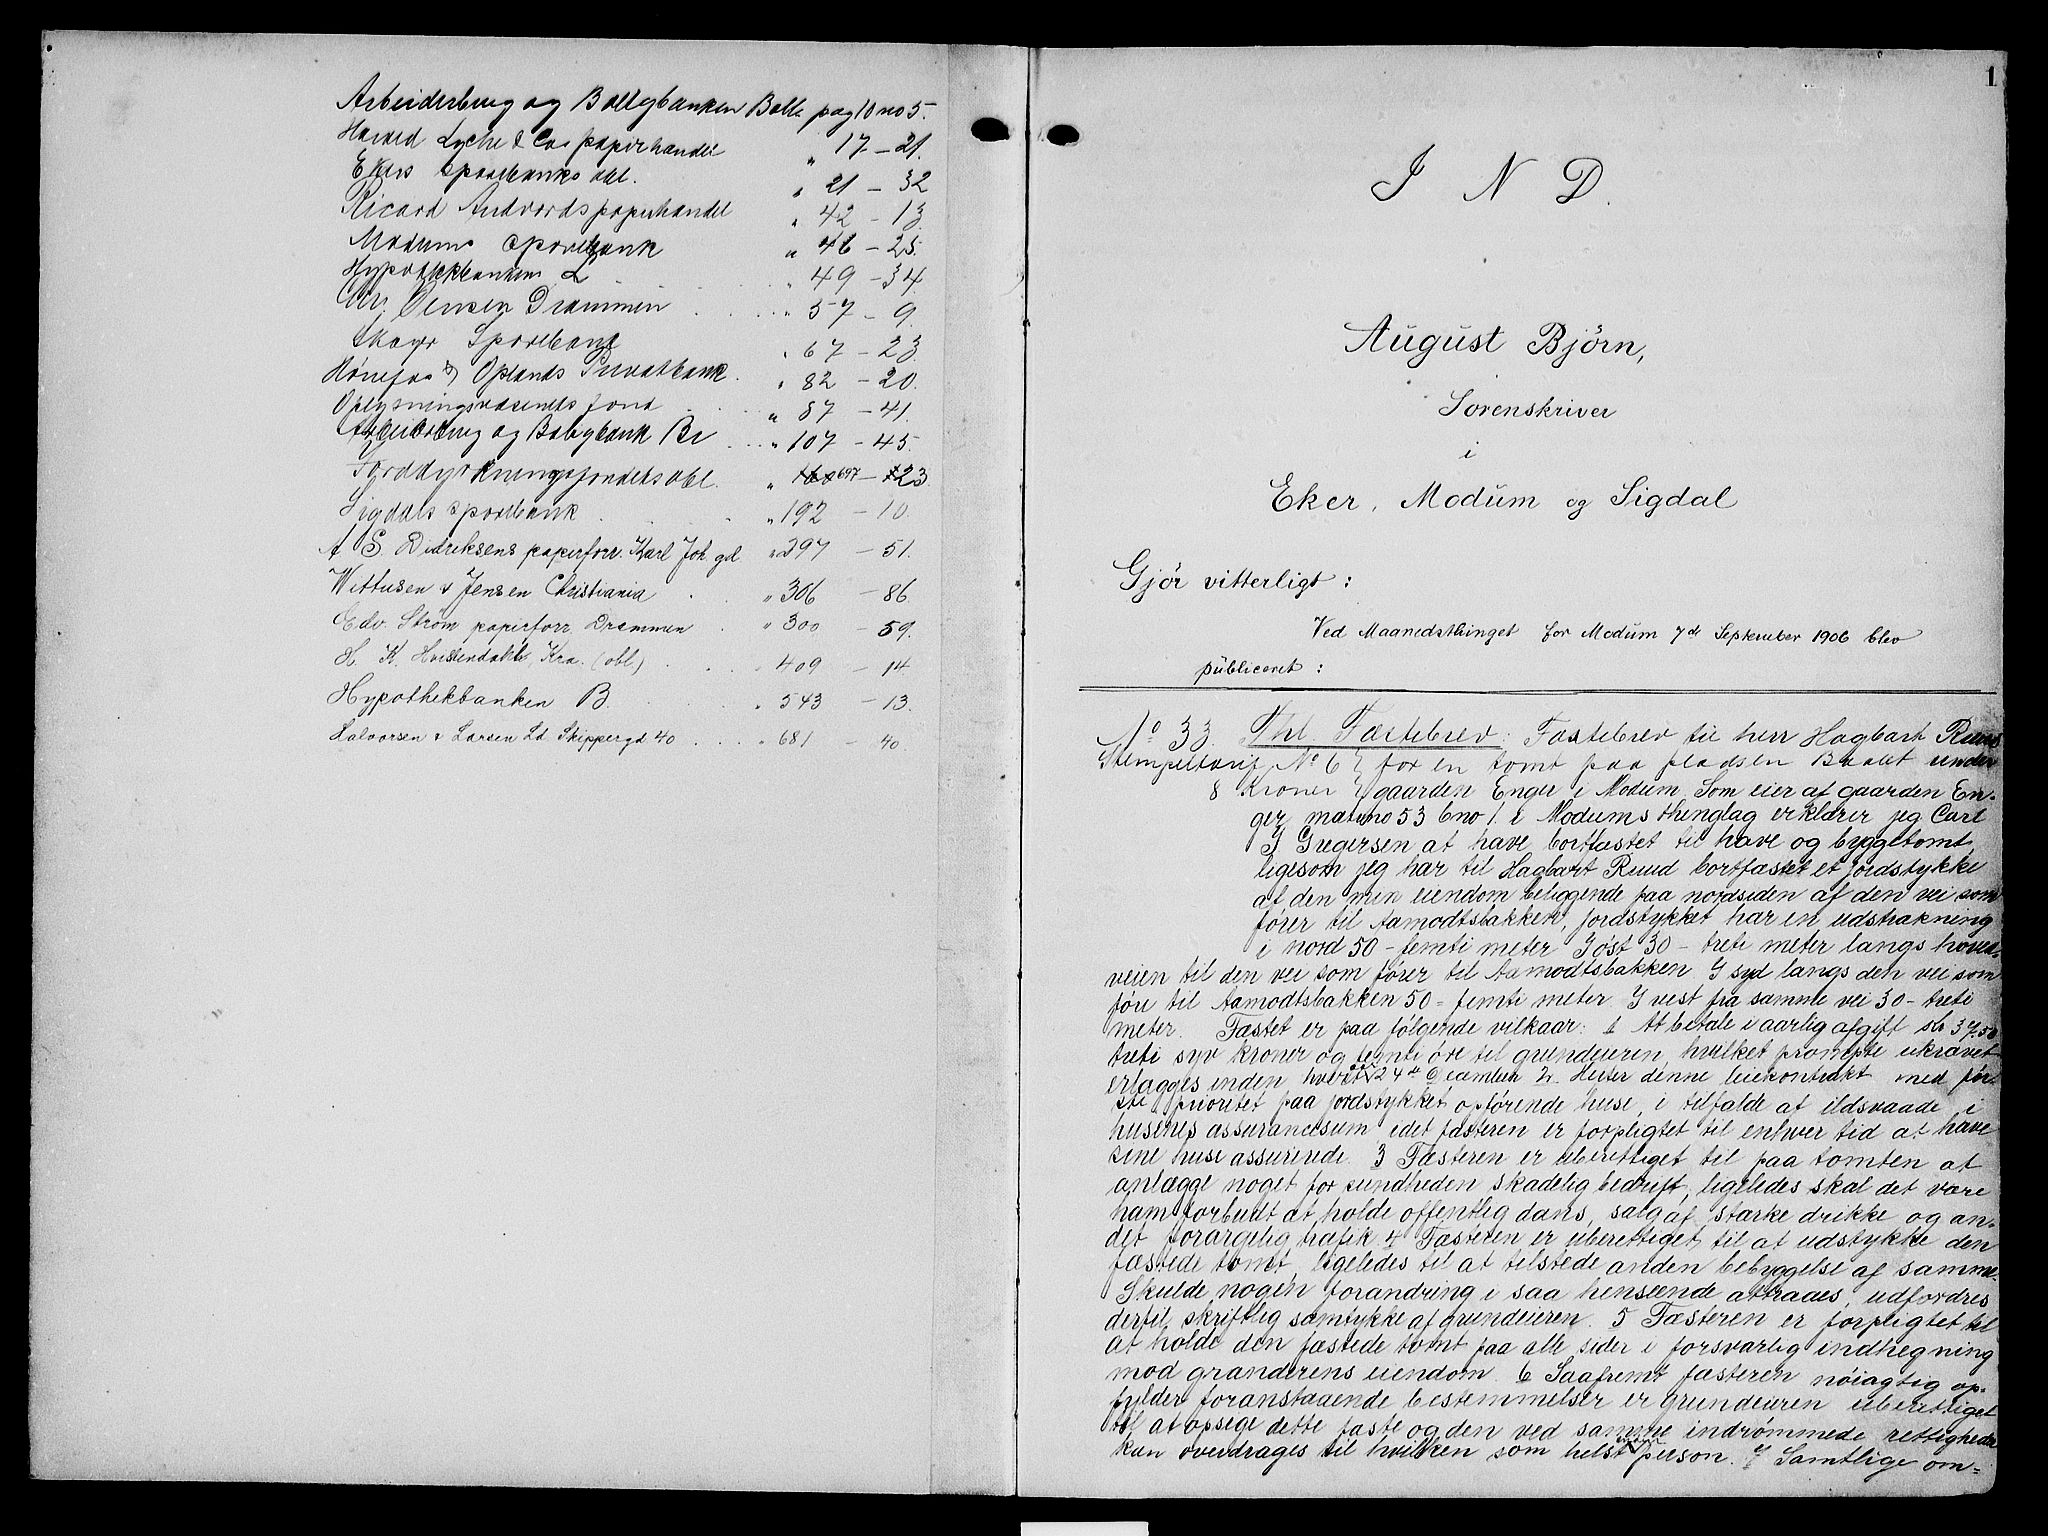 Arbeiderbrug og Boligbanken Bolk pag 10 no 5.
Harald Lyche & Co papirhandel " 17 - 21.
Ekers Sparebanks obl. " 21 - 32
Ricard Andvords papirhandel " 42 - 13
Modums Sparebank " 46 - 25.
Hypothekbanken L " 49 - 34.
Chr. Olensen Drammen " 57 - 9.
Skoger Sparebank " 67 - 23.
Hønefos & Oplands Privatbank. " 82 - 20.
Oplysningsvæsenets fond " 87 - 41.
Arbeiderbrug og Boligbank Br " 107 - 45.
Jorddyrkningsfondets obl. " 697 - 23.
Sigdals Sparebank " 192 - 10.
A S. Didriksens papirforr. Karl Joh. gd " 297 - 51.
Wittusen & Jensen Christiania " 306 - 86.
Edv. Strøm papirforr. Drammen " 300 - 59.
H. K. Hvistendahls Kra. (obl.) " 409 - 14.
Hypothekbanken B. " 543 - 13.
Halvorsen & Larsen Ld Skippergd 40 " 681 - 40.
1
I N D.
August Björn,
Sorenskriver
i
Eker, Modum og Sigdal
Gjör vitterligt:
Ved Maanedsthinget for Modum 7de September 1906 blev
publiceret:
No 33. Thl. Fæstebrev: Fæstebrev til herr Hagbart Ruud
Stempeltarif No 6 } for en tomt paa pladsen Braatt under
8 Kroner } gaarden Enger i Modum. Som eier af gaarden En-
ger matrno 53 bno 1. i Modums thinglag erklærer jeg Carl
J Gregersen at have bortfæstet til have og byggetomt,
ligesom jeg har til Hagbart Ruud bortfæstet et jordstykke
af den min eiendom beliggende paa nordsiden af den vei som
fører til Aamodtsbakken, jordstykket har en udstrækning
i nord 50 - femti meter I øst 30 - treti meter langs hoved-
veien til den vei som fører til Aamodtsbakken I syd langs den vei som
føre til Aamodtsbakken 50 = femti meter I vest fra samme vei 30 - treti
meter. Fæstet er paa følgende vilkaar: 1 At betale i aarlig afgift kr 37,50
treti syv kroner og femti øre til grundeieren, hvilket prompte ukrævet
erlægges inden hvert aars 24de December 2. Hefter denne leiekontrakt med før-
ste prioritet paa jordstykket opførende huse, i tilfælde af ildsvaade i
husenes assurancesum idet fæsteren er forpligtet til enhver tid at have
sine huse assurerede. 3 Fæsteren er uberettiget til paa tomten at
anlægge noget for sundheden skadelig bedrift, ligeledes skal det være
ham forbudt at holde offentlig dans, salg af stærke drikke og an-
det forargelig trafik 4 Fæsteren er uberettiget til at udstykke den
fæstede tomt, ligeledes til at tilstede anden bebyggelse af samme.
Skulde nogen forandring i saa henseende attraaes, udfordres
dertil skriftlig samtykke af grundeieren. 5 Fæsteren er forpligtet til
at holde den fæstede tomt paa alle sider i forsvarlig indhegning
mod granderens eiendom. 6 Saafremt fæsteren nøiagtig op-
fylder foranstaaende bestemmelser er grundeieren uberettiget
til at opsige dette fæste og den ved samme indrømmede rettigheder
kan overdrages til hvilken som helst person. 7 Samtlige om=